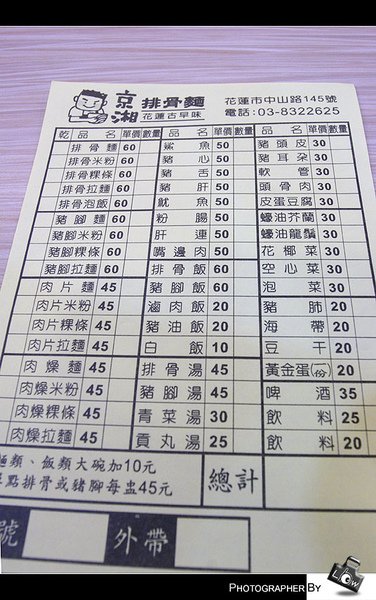 京湘 排骨麵 花蓮古早味
花蓮市中山路145號
電話:03-8322625
乾 品名 單價 數量 品名 單價 數量 品名 單價 數量
排骨麵 60 鯊魚 50 豬頭皮 30
排骨米粉 60 豬心 50 豬耳朵 30
排骨粿條 60 豬舌 50 軟管 30
排骨拉麵 60 豬肝 50 頭骨肉 30
排骨泡飯 60 魷魚 50 皮蛋豆腐 30
豬腳麵 60 粉腸 50 蠔油芥蘭 30
豬腳米粉 60 肝連 50 蠔油龍鬚 30
豬腳粿條 60 嘴邊肉 50 花椰菜 30
豬腳拉麵 60 排骨飯 60 空心菜 30
肉片麵 45 豬腳飯 60 泡菜 30
肉片米粉 45 滷肉飯 20 豬肺 20
肉片粿條 45 豬油飯 20 海帶 20
肉片拉麵 45 白飯 10 豆干 20
肉燥麵 45 排骨湯 45 黃金蛋(份) 20
肉燥米粉 45 豬腳湯 45 啤酒 35
肉燥粿條 45 青菜湯 30 飲料 25
肉燥拉麵 45 貢丸湯 25 飲料 20
麵類、飯類大碗加10元
點排骨或豬腳每盅45元
總計
號 外帶
PHOTOGRAPHER BY